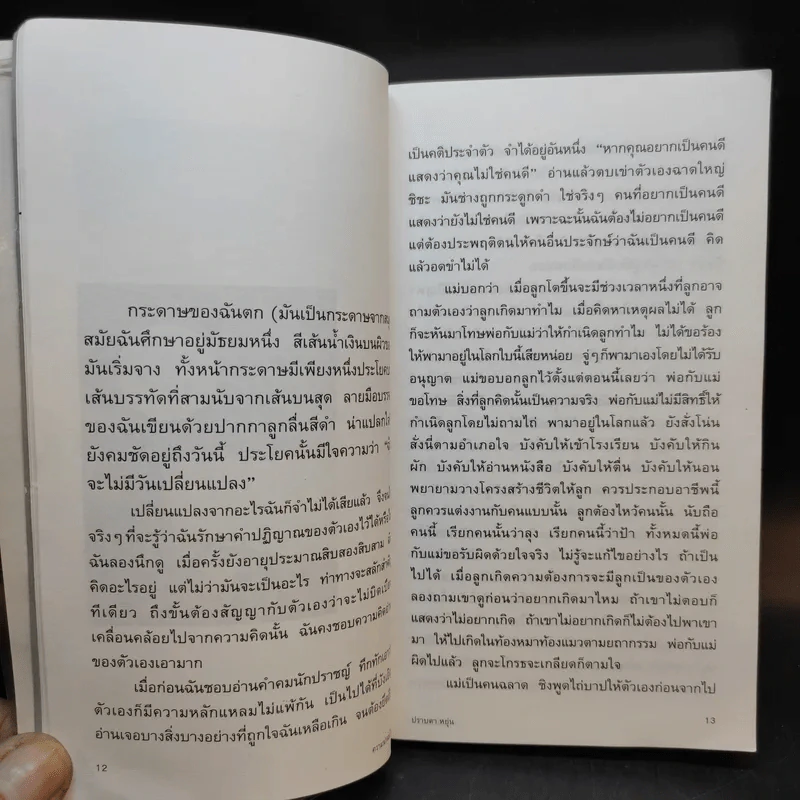 กระดาษของฉันตก (มันเป็นกระดาษจาก
สมัยฉันศึกษาอยู่มัธยมหนึ่ง สีเส้นน้ำเงินบนผิว
มันเริ่มจาง ทั้งหน้ากระดาษมีเพียงหนึ่งประโยค
เส้นบรรทัดที่สามนับจากเส้นบนสุด ลายมือบรร
ของฉันเขียนด้วยปากกาลูกลื่นสีดำ น่าแปลก
ยังคมชัดอยู่ถึงวันนี้ ประโยคนั้นมีใจความว่า
จะไม่มีวันเปลี่ยนแปลง”
เปลี่ยนแปลงจากอะไรฉันก็จำไม่ได้เสียแล้ว จึง
จริงๆ ที่จะรู้ว่าฉันรักษาคำปฏิญาณของตัวเองไว้ได้
ฉันลองนึกดู เมื่อครั้งยังอายุประมาณสิบสองสิบสาม
คิดอะไรอยู่ แต่ไม่ว่ามันจะเป็นอะไร ท่าทางจะสลัก
ทีเดียว ถึงขั้นต้องสัญญากับตัวเองว่าจะไม่
เคลื่อนคล้อยไปจากความคิดนั้น ฉันคงชอบความคิด
ของตัวเองเอามาก
เมื่อก่อนฉันชอบอ่านคำคมนักปราชญ์ ทึกทักเอา
ตัวเองก็มีความหลักแหลมไม่แพ้กัน เป็นไปได้ที่
อ่านเจอบางสิ่งบางอย่างที่ถูกใจฉันเหลือเกิน จนต้อง
12
เป็นคติประจำตัว จำได้อยู่อันหนึ่ง “หากคุณอยากเป็นคนดี
แสดงว่าคุณไม่ใช่คนดี” อ่านแล้วตบเข่าตัวเองฉาดใหญ่
ชิชะ มันช่างถูกกระดูกดำ ใช่จริงๆ คนที่อยากเป็นคนดี
แสดงว่ายังไม่ใช่คนดี เพราะฉะนั้นฉันต้องไม่อยากเป็นคนดี
แต่ต้องประพฤติตนให้คนอื่นประจักษ์ว่าฉันเป็นคนดี คิด
แล้วอดขำไม่ได้
แม่บอกว่า เมื่อลูกโตขึ้นจะมีช่วงเวลาหนึ่งที่ลูกอาจ
ถามตัวเองว่าลูกเกิดมาทำไม เมื่อคิดหาเหตุผลไม่ได้ ลูก
ก็จะหันมาโทษพ่อกับแม่ว่าให้กำเนิดลูกทำไม ไม่ได้ขอร้อง
ให้พามาอยู่ในโลกใบนี้เสียหน่อย จู่ๆก็พามาเองโดยไม่ได้รับ
อนุญาต แม่ขอบอกลูกไว้ตั้งแต่ตอนนี้เลยว่า พ่อกับแม่
ขอโทษ สิ่งที่ลูกคิดนั้นเป็นความจริง พ่อกับแม่ไม่มีสิทธิ์ให้
กำเนิดลูกโดยไม่ถามไถ่ พามาอยู่ในโลกแล้ว ยังสั่งโน่น
สั่งนี่ตามอำเภอใจ บังคับให้เข้าโรงเรียน บังคับให้กิน
ผัก บังคับให้อ่านหนังสือ บังคับให้ตื่น บังคับให้นอน
พยายามวางโครงสร้างชีวิตให้ลูก ควรประกอบอาชีพนี้
ลูกควรแต่งงานกับคนแบบนั้น ลูกต้องไหว้คนนั้น นับถือ
คนนี้ เรียกคนนั้นว่าลุง เรียกคนนี้ว่าป้า ทั้งหมดนี้พ่อ
กับแม่ขอรับผิดด้วยใจจริง ไม่รู้จะแก้ไขอย่างไร ถ้าเป็น
ไปได้ เมื่อลูกเกิดความต้องการจะมีลูกเป็นของตัวเอง
ลองถามเขาดูก่อนว่าอยากเกิดมาไหม ถ้าเขาไม่ตอบก็
แสดงว่าไม่อยากเกิด ถ้าเขาไม่อยากเกิดก็ไม่ต้องไปพาเขา
มา ให้ไปเกิดในท้องหมาท้องแมวตามยถากรรม พ่อกับแม่
ผิดไปแล้ว ลูกจะโกรธจะเกลียดก็ตามใจ
แม่เป็นคนฉลาด ชิงพูดไถ่บาปให้ตัวเองก่อนจากไป
ปราบดา หยุ่น
13